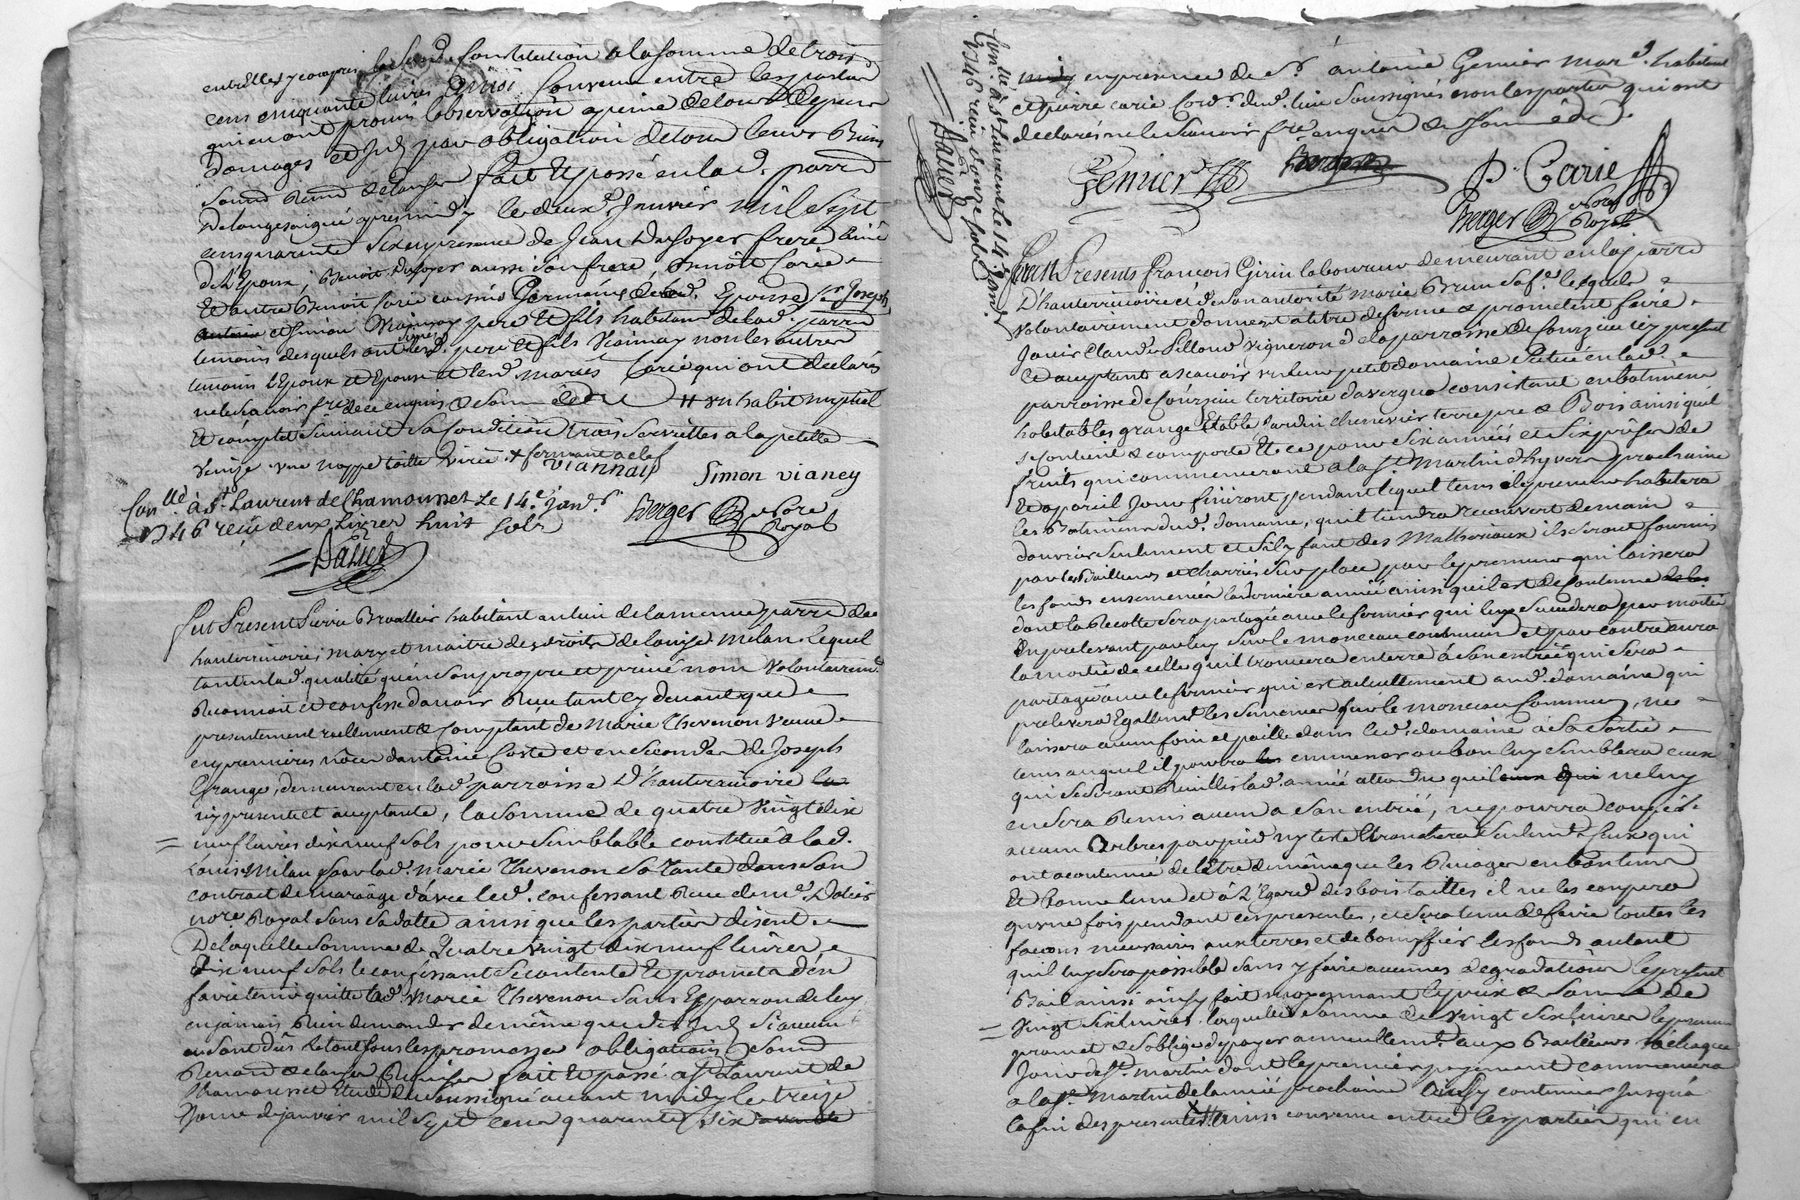 entr'elles y compris la seconde constitution a la somme de trois
cens cinquante livres Ainsi convenu entre les parties
qui en ont promis l'observation a peine de tous depens
domages et par obligation de tous leurs Biens
fait et passé en lad. parre
de longesaigne apres midy le deux. Janvier mil sept
cens quarante six en presence de Jean Dufoyer frere ainé
de l'Epoux, Benoit Dufoyer aussi son frere, Benoit Carie
Et autre Benoit Carie cousins Germains de lad. Epouse, Sr Joseph
et simon Viannay pere et fils habitans de lad. parre
temoins desquels ont signé lesd. pere et fils Viannay non les autres
temoins l'Epoux et Epouse et lesd. mariés Carie qui ont declarés
ne le scavoir faire de ce enquis et sommé # un habit nuptial
Et complet suivant sa condition trois serviettes a la petite
venize une nappe toille
fermant a clef
viannay simon vianey
Con.llé à St. Laurent de Chamousset Le 14.e Janv.r
1746 reçu deux Livres huit sols
Berger No.re Royal
fut Present Pierre habitant au lieu de la meme parre de
hauterivoire, mary et maitre des droits de Louise Milan, Lequel
tant en lad. qualité qu'en son propre et privé nom volontairemt.
Reconnoit et confesse d'avoir Receu tant cy devant que
presentement reellement et comptant de Marie Thevenon veuve
en premieres nôces d'antoine Coste et en secondes de Joseph
Grange, demeurant en lad. parroisse D'hauterivoire
icy presente et acceptante, la somme de quatre vingt dix
neuf livres dix neuf sols pour semblable constituée a lad.
Louise Milan par lad. Marie Thevenon sa Tante dans son
contrat de mariage d'avec led. confessant Receu de me. Dalier
no.re Royal sans sa datte ainsi que les parties disent
De laquelle somme de Quatre vingt dix neuf livres
dix neuf sols le confessant se contente Et promet d'en
faire tenir quitte lad. Marie Thevenon sans Esperance de luy
en jamais Rien demander de même que des si aucuns
en sont dûs le tout sous les promesses obligations
fait et passé a St. Laurent de
Chamousset Etude du soussigné avant midy le treize
Jour de janvier mil sept cens quarante six
en presence de Sr. antoine Genier mar.d habitant
et pierre carie Cord.r dud. lieu soussignés non les parties qui ont
declarés ne le scavoir fre. enquis et sommé
Genier
P. Carie
Berger No.re Royal
Con.llé à St. Laurent Le 14 Janv.
1746 reçu douze sols
Furent Presents François Girin laboureur demeurant en la parre
D'hauterivoire et de son autorité Marie Brun sa fe. lesquels
volontairement donnent a titre de ferme et promettent faire
Jouir Claude Pilloud vigneron de la parroisse de Courzieu icy present
Et acceptant a scavoir un leur petit domaine situé en lad.
parroisse de Courzieu territoire consistant en batiments
habitables grange Etable jardin cheneviers terre pré et Bois ainsi qu'il
se contient et comporte Et ce pour six années et six prises de
fruits qui commenceront a la St. Martin d'hyver prochaine
Et a pareil Jour finiront pendant lequel tems le preneur habitera
les Batiments dud. domaine, qu'il tiendra recouvert de main
d'ouvrier seulement et s'il y faut des Matheriaux ils seront fournis
par les Bailleurs et charriés sur place par le preneur qui laissera
les fonds ensemencés la derniere année ainsi qu'il est de coutume
dont la Recolte sera partagée avec le fermier qui luy succedera par moitié
en prelevant par luy sur le monceau commun et par contre aura
la moitié de celle qu'il trouvera en terre à son entrée qui sera
partagée avec le fermier qui est actuellement aud. domaine qui
prelevera Egallemt. les semences sur le monceau Commun, ne
laissera aucun foin et paille dans led. domaine à sa sortie
tems auquel il pourra emmener ou bon luy semblera ceux
qui se seront Cueillis lad. année attendu qu'il ne luy
en sera Remis aucun a son entrée, ne pourra couper
aucun Arbres par pied ny teste Ebranchera seulemt. Ceux qui
ont acoutumé de l'être de même que les Rivages en bon tems
Et bonne lune et à l'Egard des bois taillés il ne les coupera
qu'une fois pendant ces presentes, et sera tenu de faire toutes les
façons necessaires aux terres et de bonnifier les fonds autant
qu'il luy sera possible sans y faire aucunes degradations le present
Bail ainsi fait moyennant le prix et somme de
Vingt six livres, laquelle somme de vingt six livres le preneur
promet et s'oblige de payer annuellemt. aux Bailleurs à chaque
Jour de St. Martin dont le premier payement commencera
a la St. Martin de l'année prochaine Ainsy continuer Jusqu'à
la fin des presentes ainsi convenu entre les parties qui en